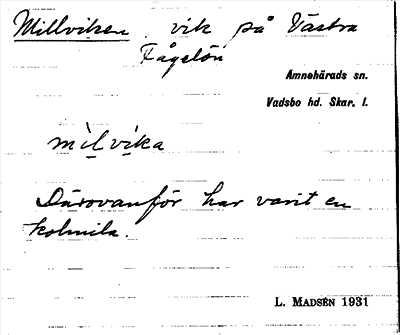 Millviken, vik på Västra
Fågelön
Amnehärads sn.
Vadsbo hd. Skar. l.
mi̠l̠vi̠ka
Därovanför har varit en
kolmila.
L. MADSÉN 1931